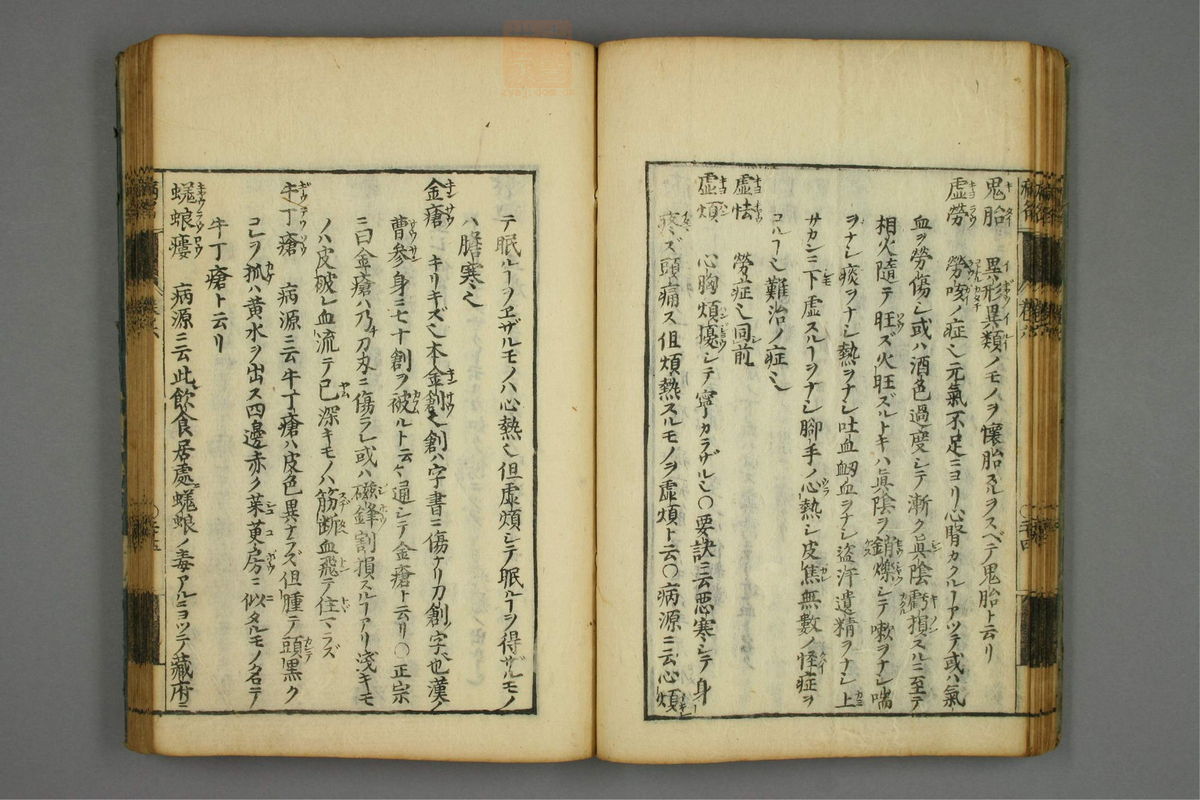 鬼胎 異形異類ノモノヲ懷胎スルヲスベテ鬼胎ト云リ
虚勞 勞咳ノ症乄元氣不足ニヨリ心腎カクルヿアツテ或ハ氣
血ヲ勞傷シ或ハ酒色過度シテ漸ク眞陰虧損スルニ至テ
相火隨テ旺ズ火旺ズルトキハ眞陰ヲ銷爍シテ嗽ヲナシ喘
ヲナシ痰ヲナシ熱ヲナシ吐血衂血ヲナシ盜汗遺精ヲナシ上
サカンニ下虚スルヿヲナシ脚手ノ心熱シ皮焦無數ノ怪症ヲ
コル丨乄難治ノ症乄
虚怯 勞症乄同前
虚煩 心胸煩擾シテ寧カラザル乄〇要訣ニ云惡寒シテ身
疼ズ頭痛ス但煩熱スルモノヲ虚煩ト云〇病源ニ云心煩
テ眠ルヿヲヱザルモノハ心熱乄但虚煩シテ眠ルヿヲ得ザルモノ
ハ膽寒乄
金瘡 キリキズ乄本金創乄創ハ字書ニ傷ナリ刀創字也漢ノ
曹參身ニ七十創ヲ被ルト云々通シテ金瘡ト云リ〇正宗
ニ曰金瘡ハ乃チ刀刃ニ傷ラレ或ハ磁鋒割損スルヿアリ淺キモ
ノハ皮破レ血流テ已深キモノハ筋斷血飛テ住マラズ
牛丁瘡 病源ニ云牛丁瘡ハ皮色異ナラズ但腫テ頭黑ク
コレヲ抓ハ黄水ヲ出ス四邊赤ク茱萸房ニ似タルモノ名テ
牛丁瘡ト云リ
蜣蜋瘻 病源ニ云此飲食居處蜣蜋ノ毒アルニヨツテ藏府ニ